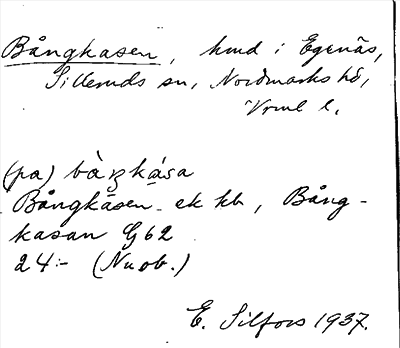 Bångkasen, hmd i Egenäs,
Silleruds sn, Nordmarks hd,
Vrml l.
(pa) bàŋká̱sa
Bångkåsen ek kb, Bång-
kasan G62
24:- (Nuob.)
E. Silfors 1937.